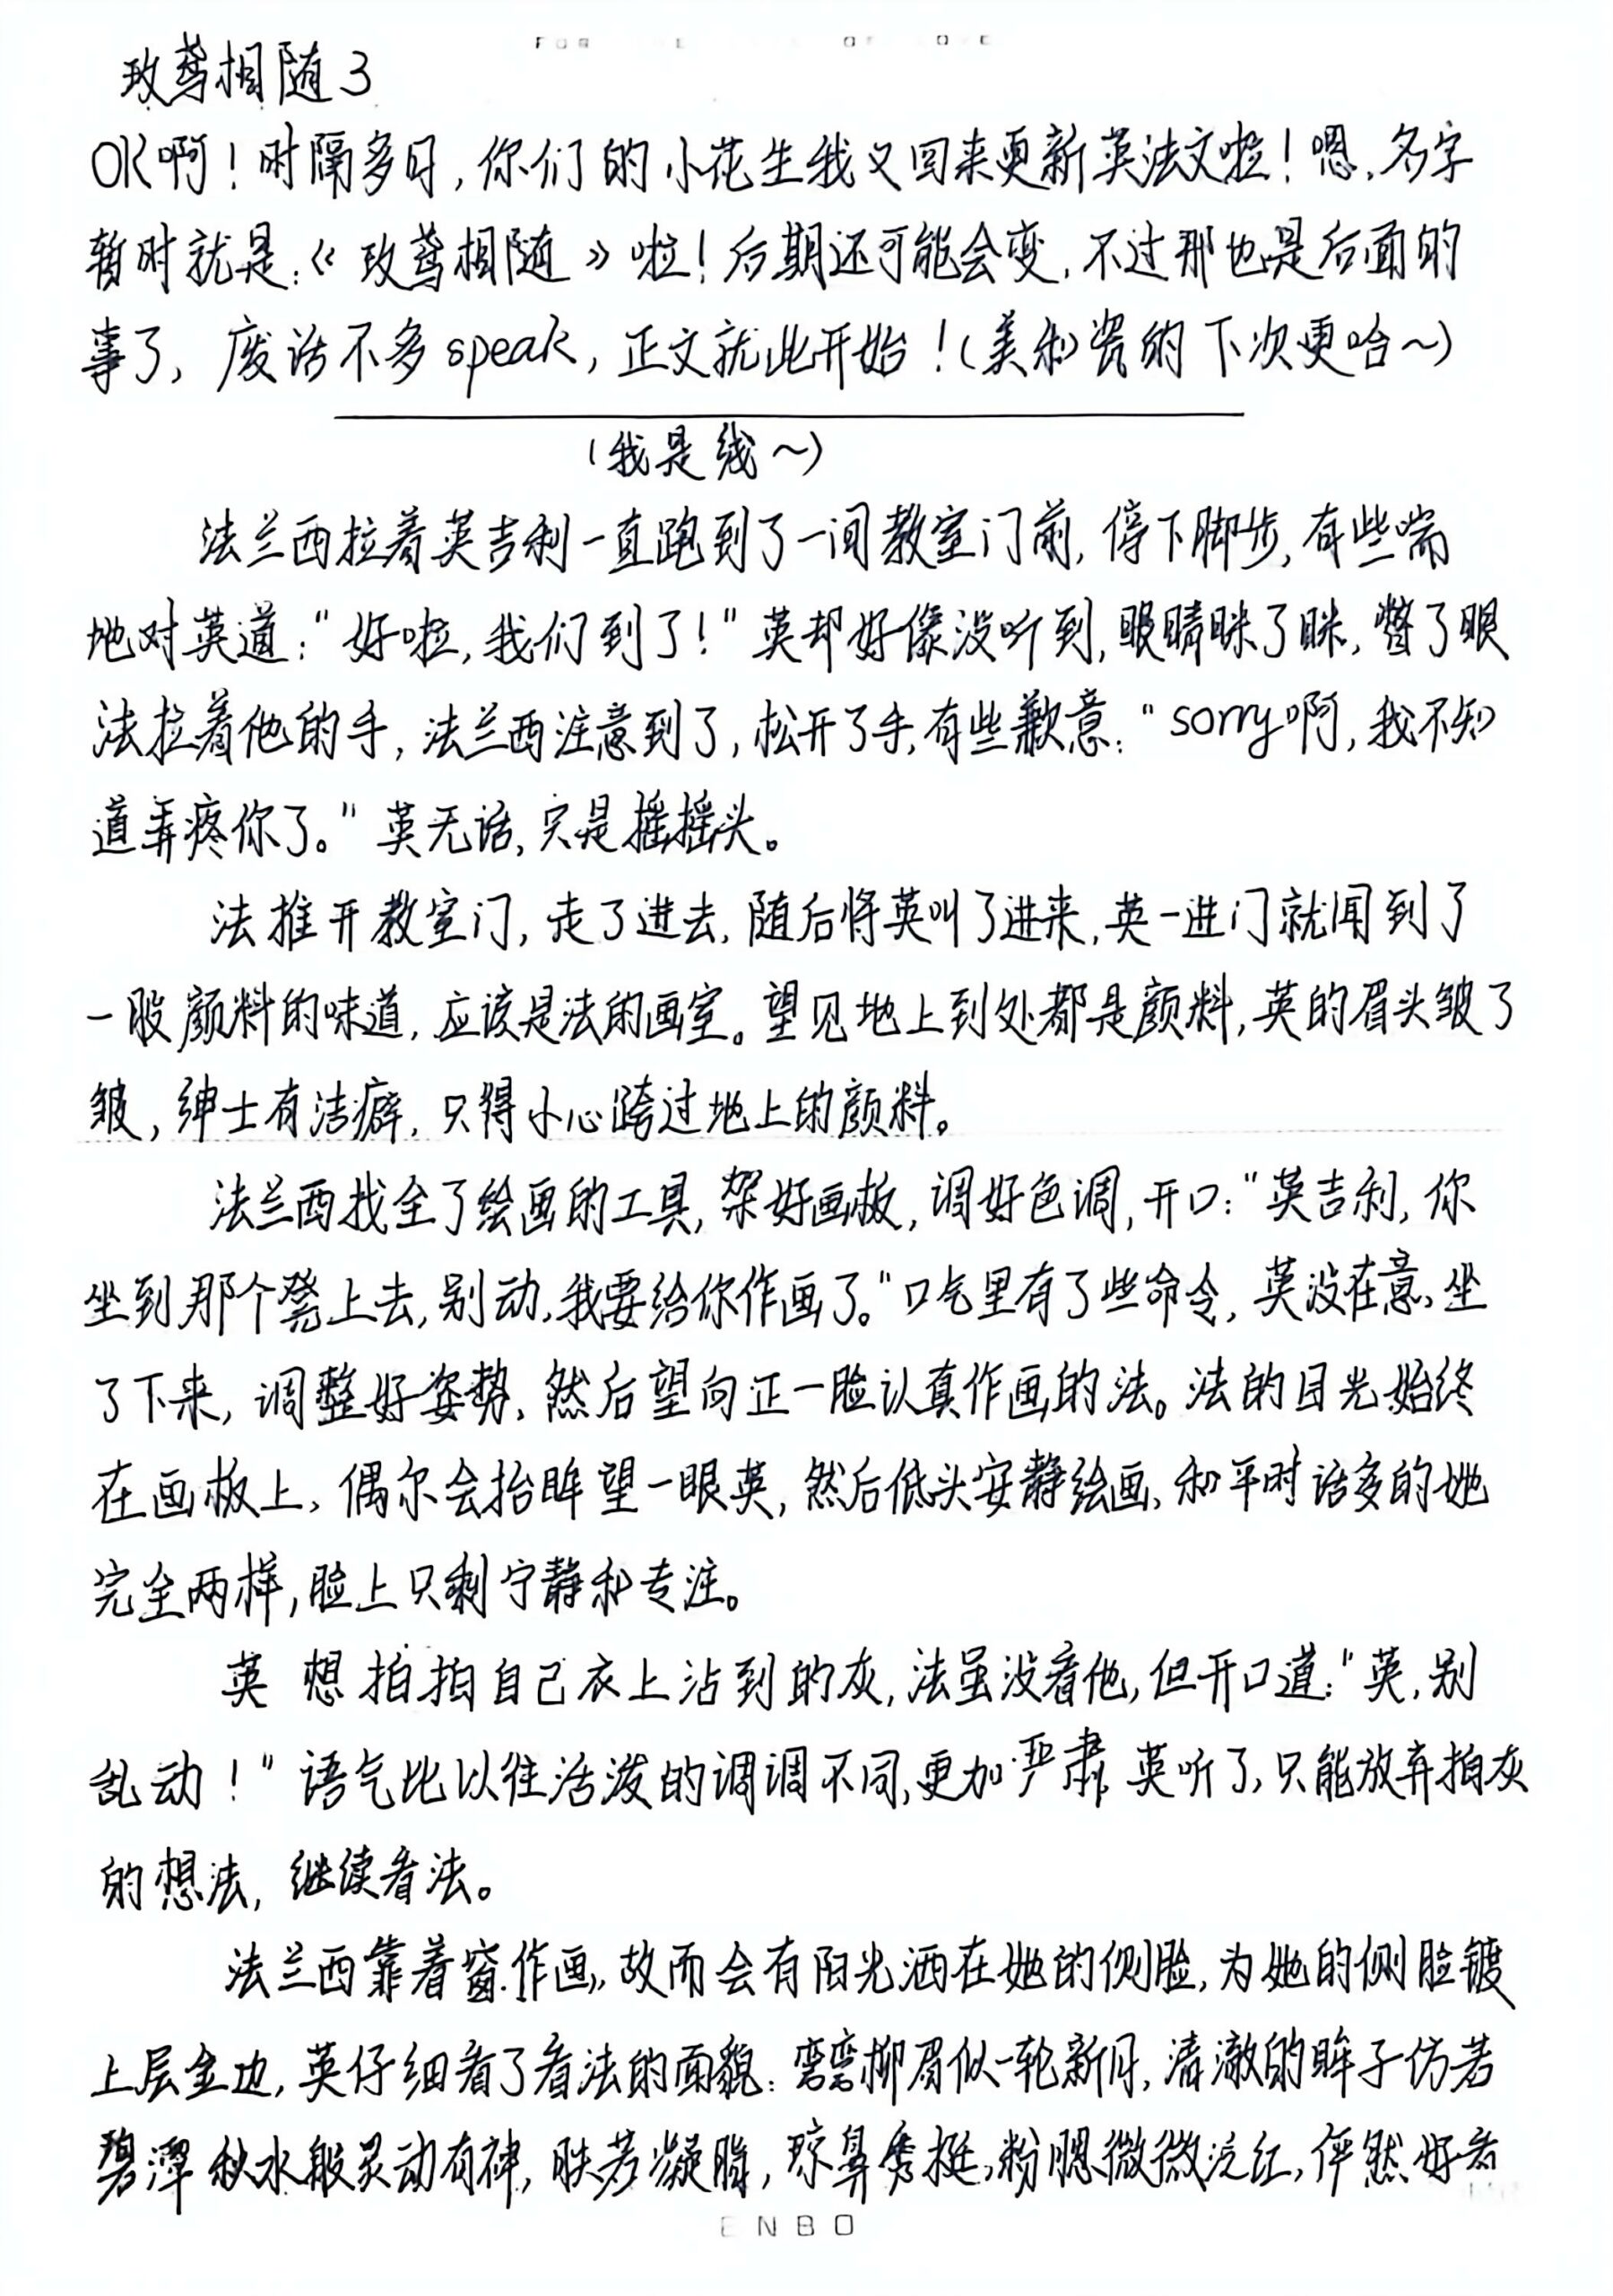 玫鸢相随3
OK啊！时隔多日，你们的小花生我又回来更新英法文啦！嗯，名字
暂时就是：《玫鸢相随》啦！后期还可能会变，不过那也是后面的
事了，废话不多speak，正文就此开始！（美和瓷的下次更哈～）
（我是线～）
法兰西拉着英吉利一直跑到了一间教室门前，停下脚步，有些喘
地对英道：“好啦，我们到了！”英却好像没听到，眼睛眯了眯，瞥了眼
法拉着他的手，法兰西注意到了，松开了手，有些歉意：“sorry啊，我不知
道弄疼你了。”英无话，只是摇摇头。
法推开教室门，走了进去，随后将英叫了进来，英一进门就闻到了
一股颜料的味道，应该是法的画室。望见地上到处都是颜料，英的眉头皱了
皱，绅士有洁癖，只得小心跨过地上的颜料。
法兰西找全了绘画的工具，架好画板，调好色调，开口：“英吉利，你
坐到那个凳上去，别动，我要给你作画了。”口气里有了些命令，英没在意，坐
了下来，调整好姿势，然后望向正一脸认真作画的法。法的目光始终
在画板上，偶尔会抬眸望一眼英，然后低头安静绘画，和平时话多的她
完全两样，脸上只剩宁静和专注。
英想拍拍自己衣上沾到的灰，法虽没看他，但开口道：“英，别
乱动！”语气比以往活泼的调调不同，更加严肃，英听了，只能放弃拍灰
的想法，继续看法。
法兰西靠着窗作画，故而会有阳光洒在她的侧脸，为她的侧脸镀
上层金边，英仔细看了看法的面貌：弯弯柳眉似一轮新月，清澈的眸子仿若
碧潭秋水般灵动有神，肤若凝脂，琼鼻秀挺，粉腮微微泛红，怦然好看
ENBO